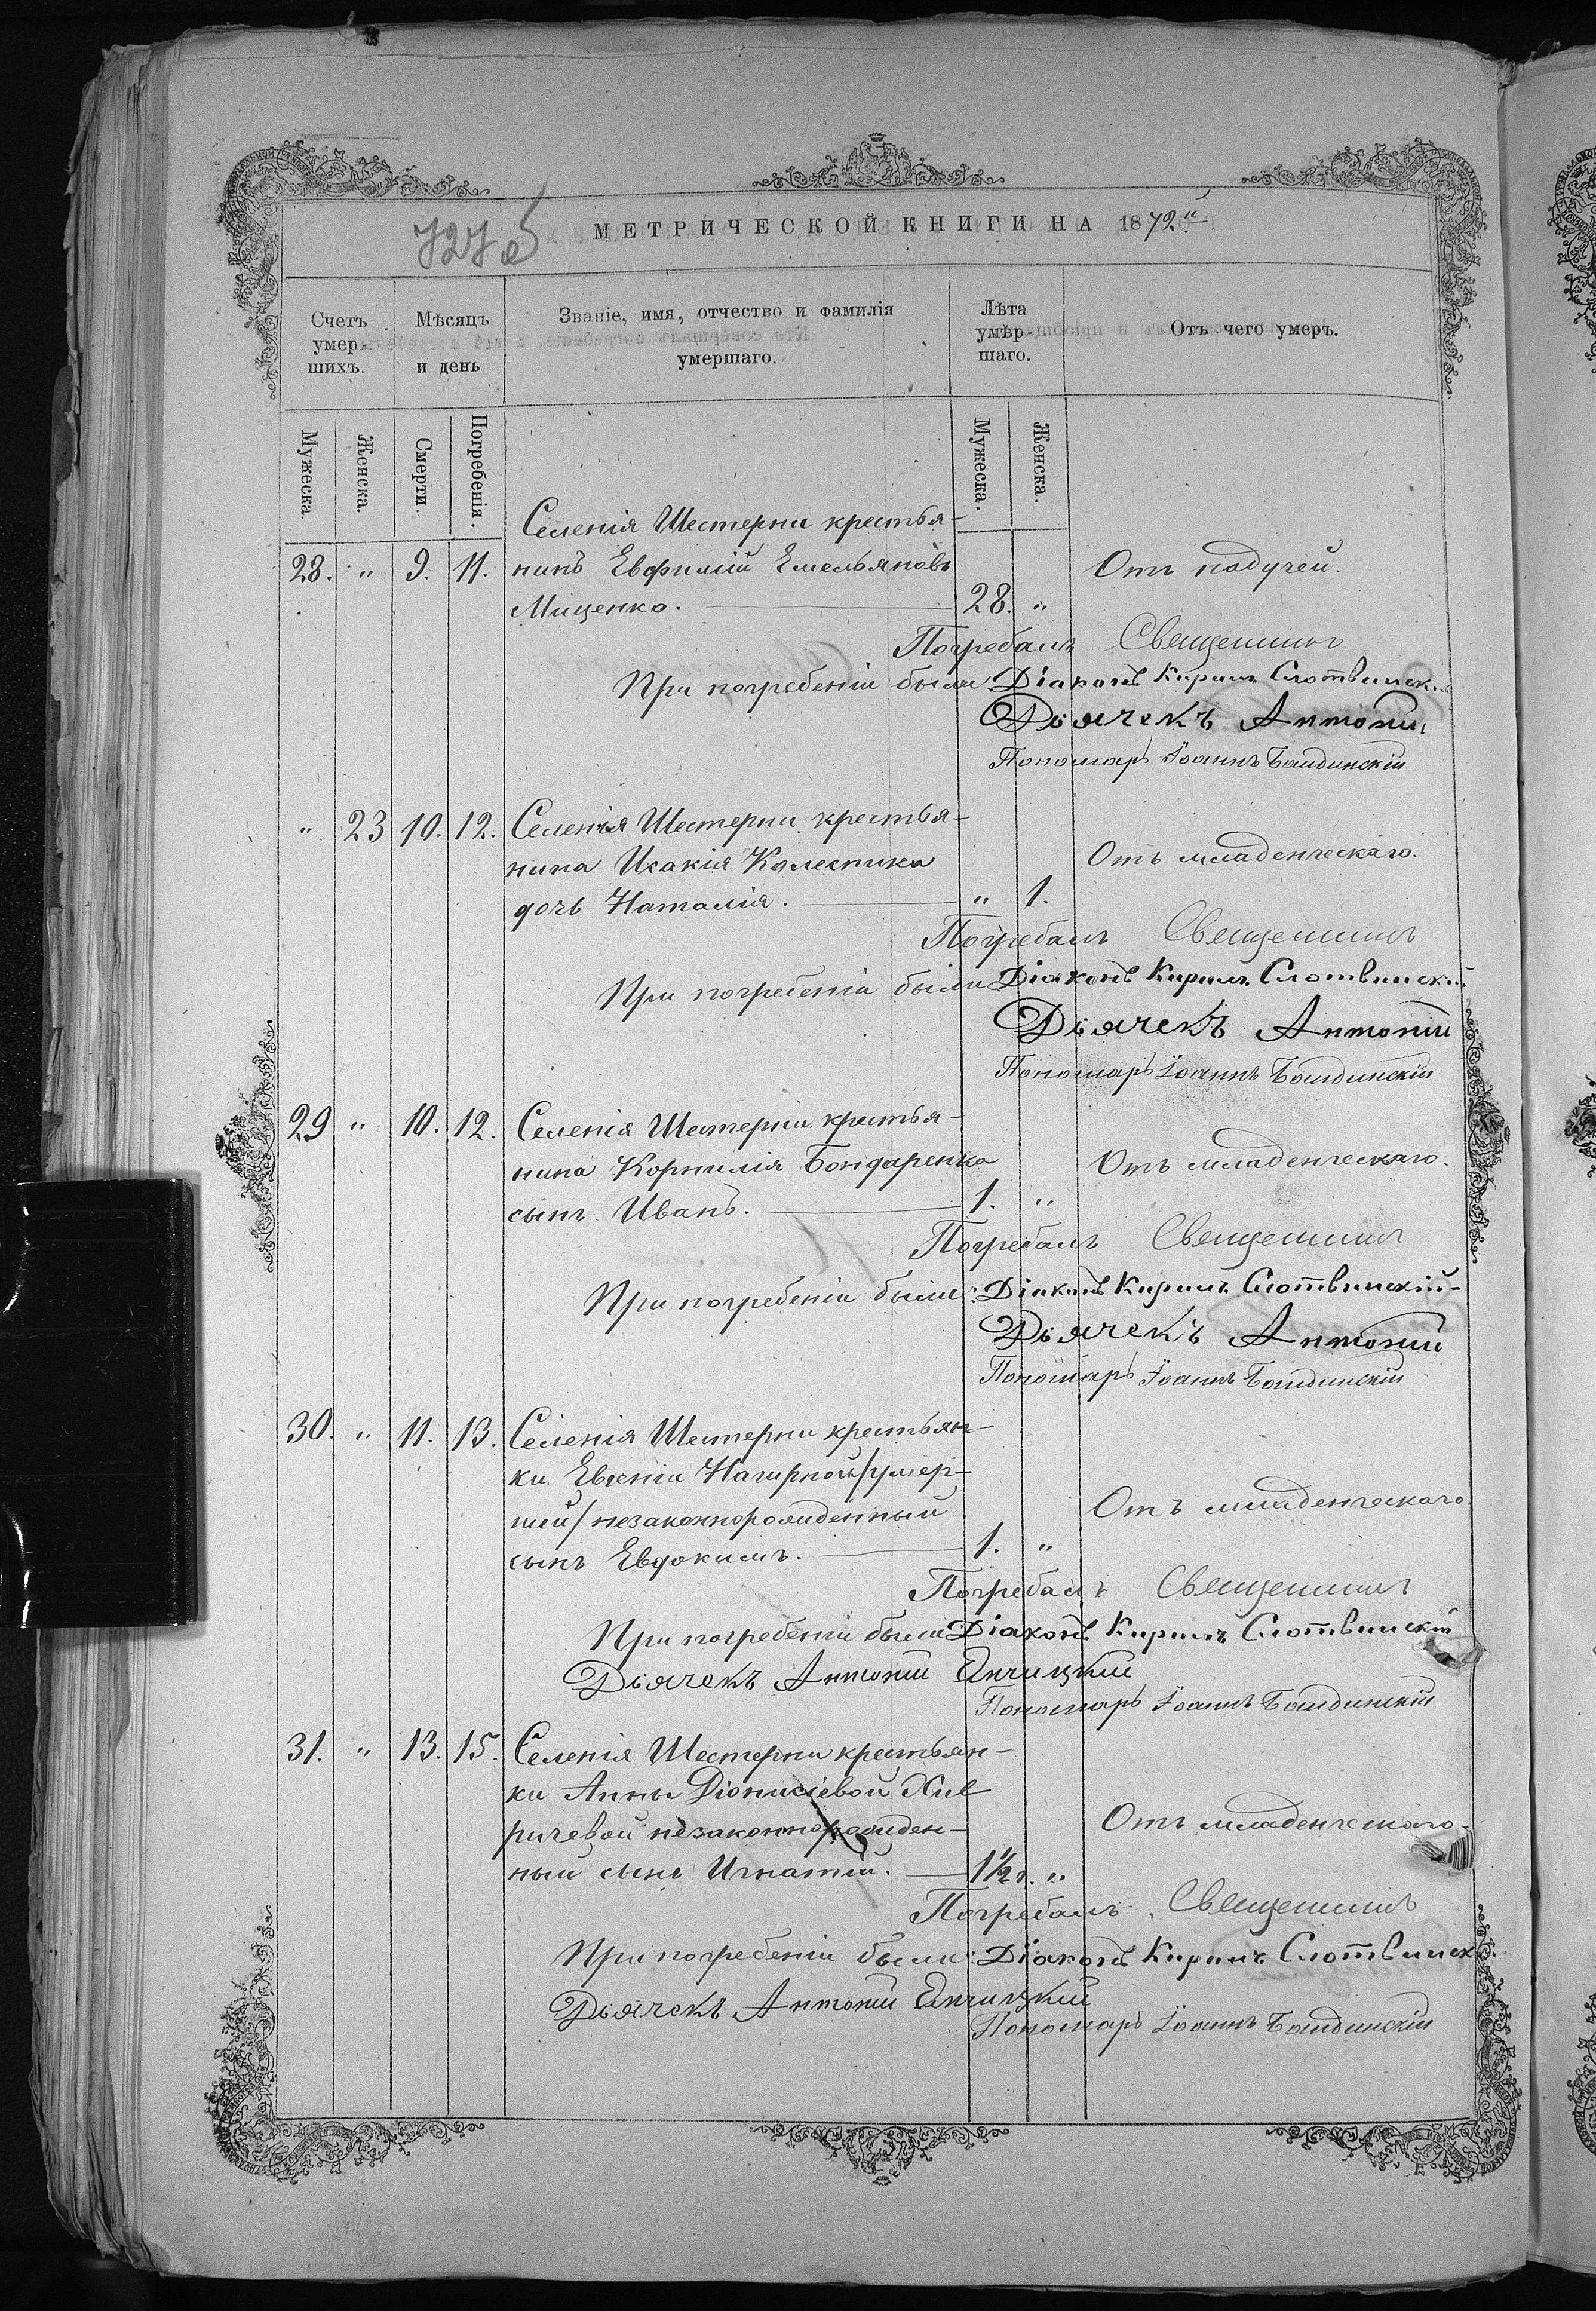 727 об
МЕТРИЧЕСКОЙ КНИГИ НА 1872й
Счетъ умер- шихъ.
Мѣсяцъ и день
Званіе, имя, отчество и фамилія умершаго.
Лѣта умѣр- шаго.
Отъ чего умеръ.
Мужеска. Женска. Смерти. Погребенія. Мужеска. Женска.
Селенія Шестерни крестья-
28. " 9. 11. нинъ Евфимій Емельяновъ Отъ падучей.
Мищенко. 28. "
Погребалъ Священникъ
При погребеніи были: Діаконъ Кирилъ Слотвинск
Дьячекъ Антоній
Пономарь Іоаннъ Балдинскій
" 23 10. 12. Селенія Шестерни крестья-
нина Исакія Колесника Отъ младенческаго.
дочь Наталія. " 1.
Погребалъ Священникъ
При погребеніи были Діаконъ Кирилъ Слотвинск
Дьячекъ Антоній
Пономарь Іоаннъ Балдинскій
29 " 10. 12. Селенія Шестерни крестья-
нина Корнилія Бондаренка Отъ младенческаго.
сынъ Иванъ. 1. "
Погребалъ Священникъ
При погребеніи были: Діаконъ Кирилъ Слотвинскій
Дьячекъ Антоній
Пономарь Іоаннъ Балдинскій
30. " 11. 13. Селенія Шестерни крестьян-
ки Евгеніи Нагирной /умер-
шей/ незаконнорожденный Отъ младенческаго.
сынъ Евдокимъ. 1. "
Погребалъ Священникъ
При погребеніи были Діаконъ Кирилъ Слотвинскій
Дьячекъ Антоній
Пономарь Іоаннъ Балдинскій
31. " 13. 15. Селенія Шестерни крестьян-
ки Анны Діонисіевой Хив
ричевой незаконнорожден- Отъ младенческаго.
ный сынъ Игнатій. 1½ г. "
Погребалъ Священникъ
При погребеніи были: Діаконъ Кирилъ Слотвинск
Дьячекъ Антоній
Пономарь Іоаннъ Балдинскій